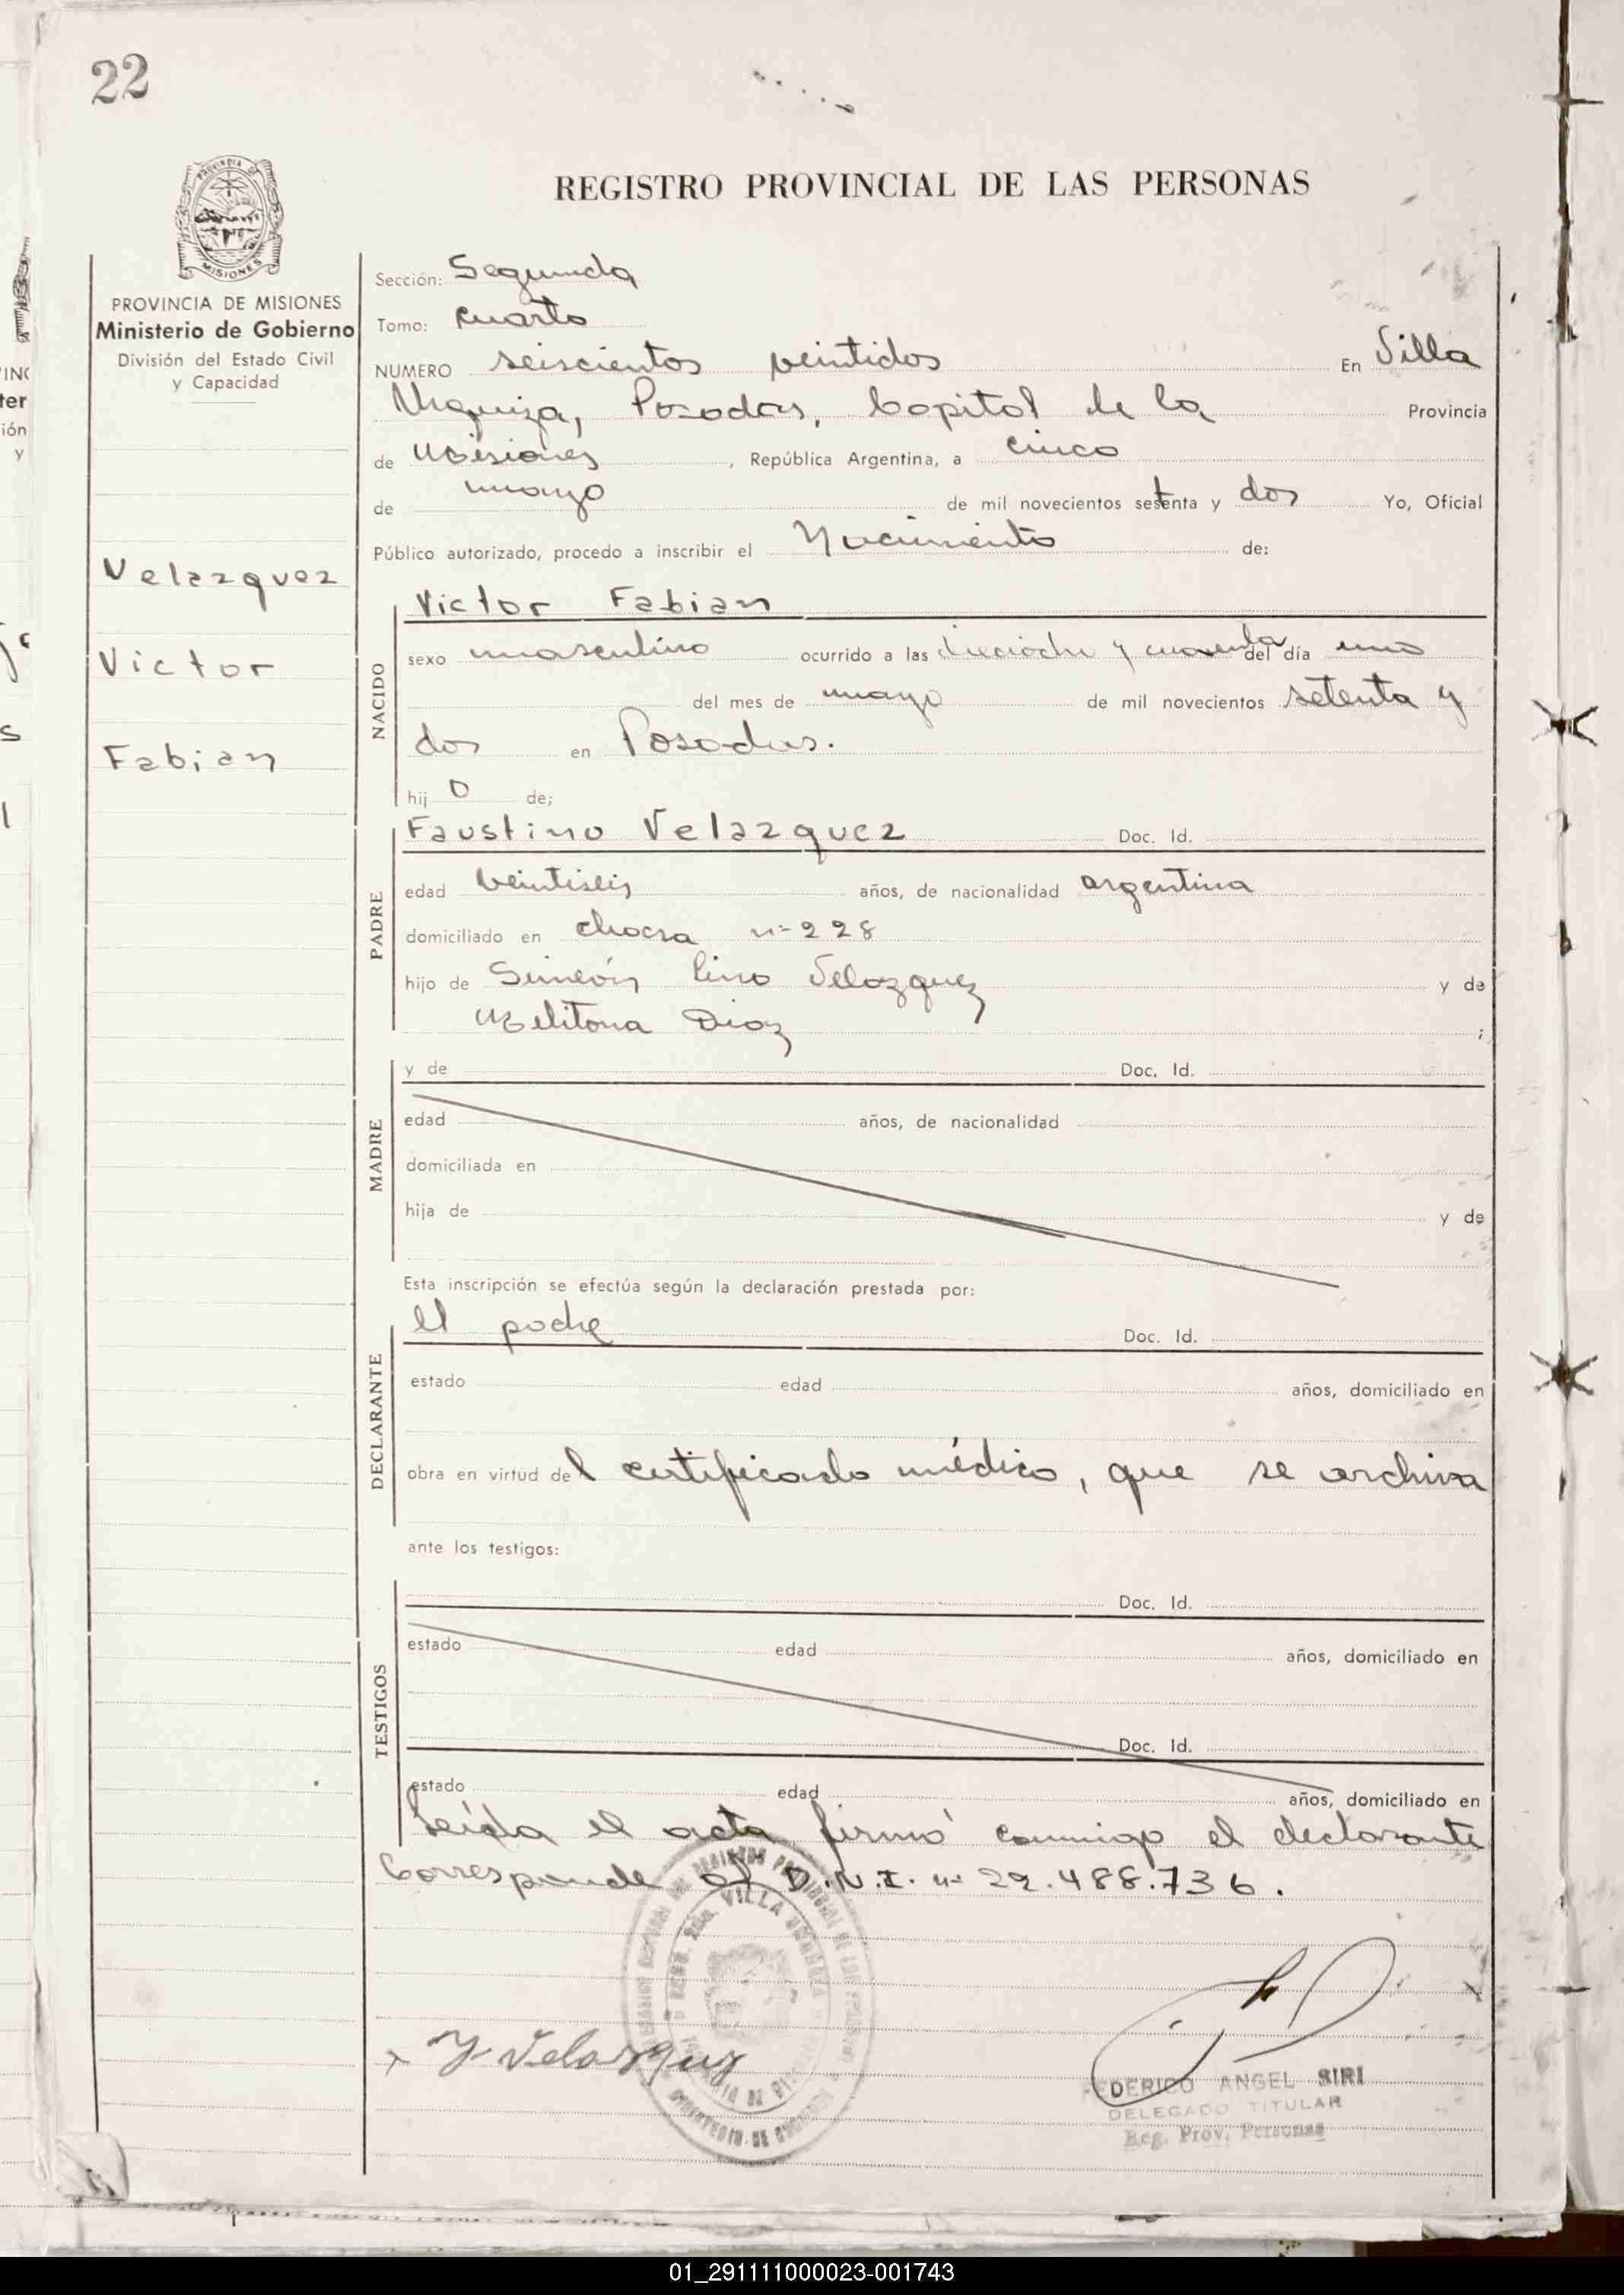 22
PROVINCIA DE
MISIONES
REGISTRO PROVINCIAL DE LAS PERSONAS
PROVINCIA DE MISIONES
Ministerio de Gobierno
División del Estado Civil
y Capacidad
Velazquez
Victor
Fabian
Sección: Segunda
Tomo: cuarto
NUMERO seiscientos veintidos En Villa
Urquiza, Posadas, Capital de la Provincia
de Misiones, República Argentina, a cinco
de mayo de mil novecientos setenta y dos Yo, Oficial
Público autorizado, procedo a inscribir el Nacimiento de:
NACIDO
Victor Fabian
sexo masculino ocurrido a las dieciocho y cuarenta del día uno
del mes de mayo de mil novecientos setenta y
dos en Posadas.
hij o de;
PADRE
Faustino Velazquez Doc. Id.
edad veintiseis años, de nacionalidad argentina
domiciliado en chacra nº 228
hijo de Simeón Lino Velazquez y de
Melitona Diaz ;
MADRE
y de Doc. Id.
edad años, de nacionalidad
domiciliada en
hija de y de
Esta inscripción se efectúa según la declaración prestada por:
DECLARANTE
el padre Doc. Id.
estado edad años, domiciliado en
obra en virtud del certificado médico, que se archiva
ante los testigos:
TESTIGOS
Doc. Id.
estado edad años, domiciliado en
Doc. Id.
estado edad años, domiciliado en
Leída el acta firmó conmigo el declarante
Corresponde al D.N.I. nº 22.488.736.
VILLA URQUIZA
x F Velazquez
FEDERICO ANGEL SIRI
DELEGADO TITULAR
Reg. Prov. Personas
01_291111000023-001743